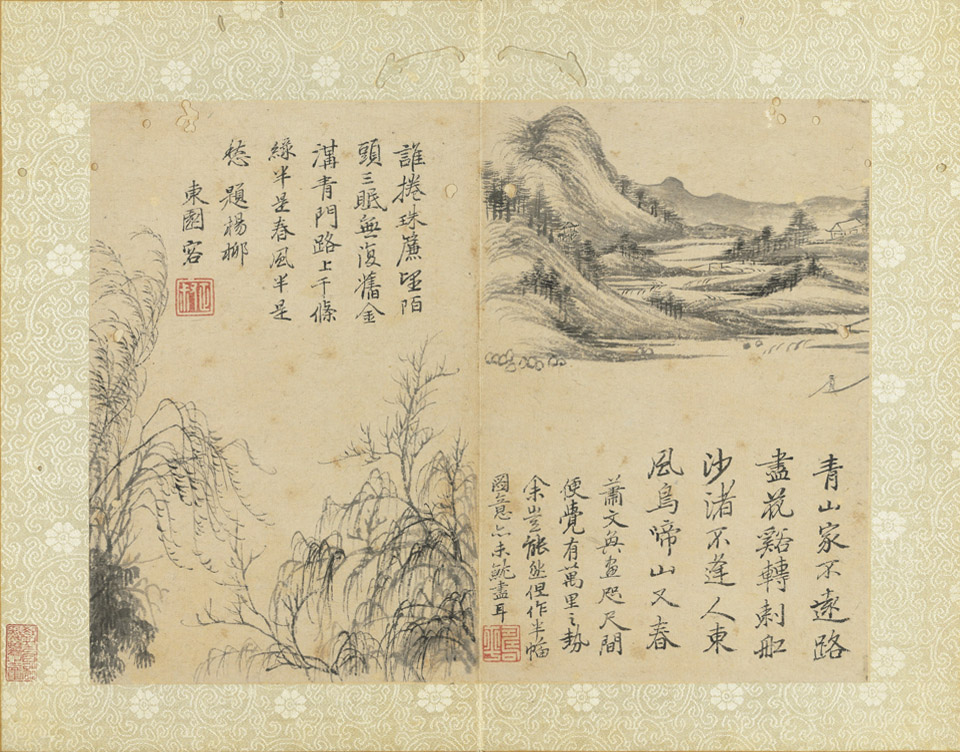 青山家不遠路
盡花谿轉刺舡
沙渚不逢人東
風鳥啼山又春
蕭文奐畫咫尺間
便覺有萬里之勢
余豈能然但作半幅
圖意亦未能盡耳
誰捲珠簾望陌
頭三眠無復舊金
溝青門路上千條
綠半是春風半是
愁 題楊柳
東園客